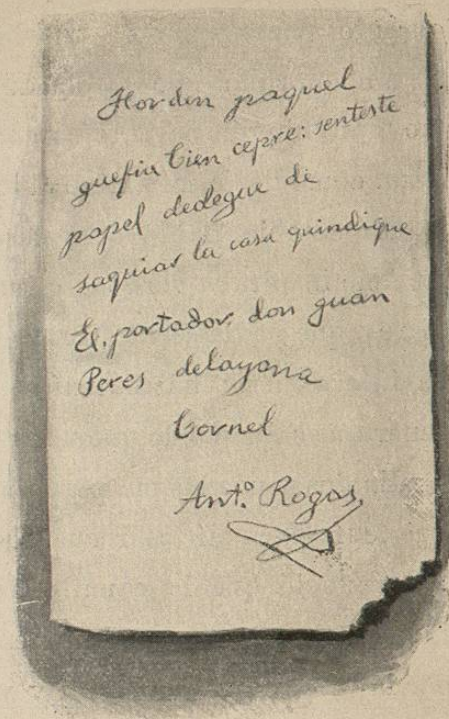 Horden paquel
guefin bien cepre: senteste
papel dedegue de
saquiar la casa quindique
El. portador. don guan
Peres delayana
Cornel
Ant.º Rogas.